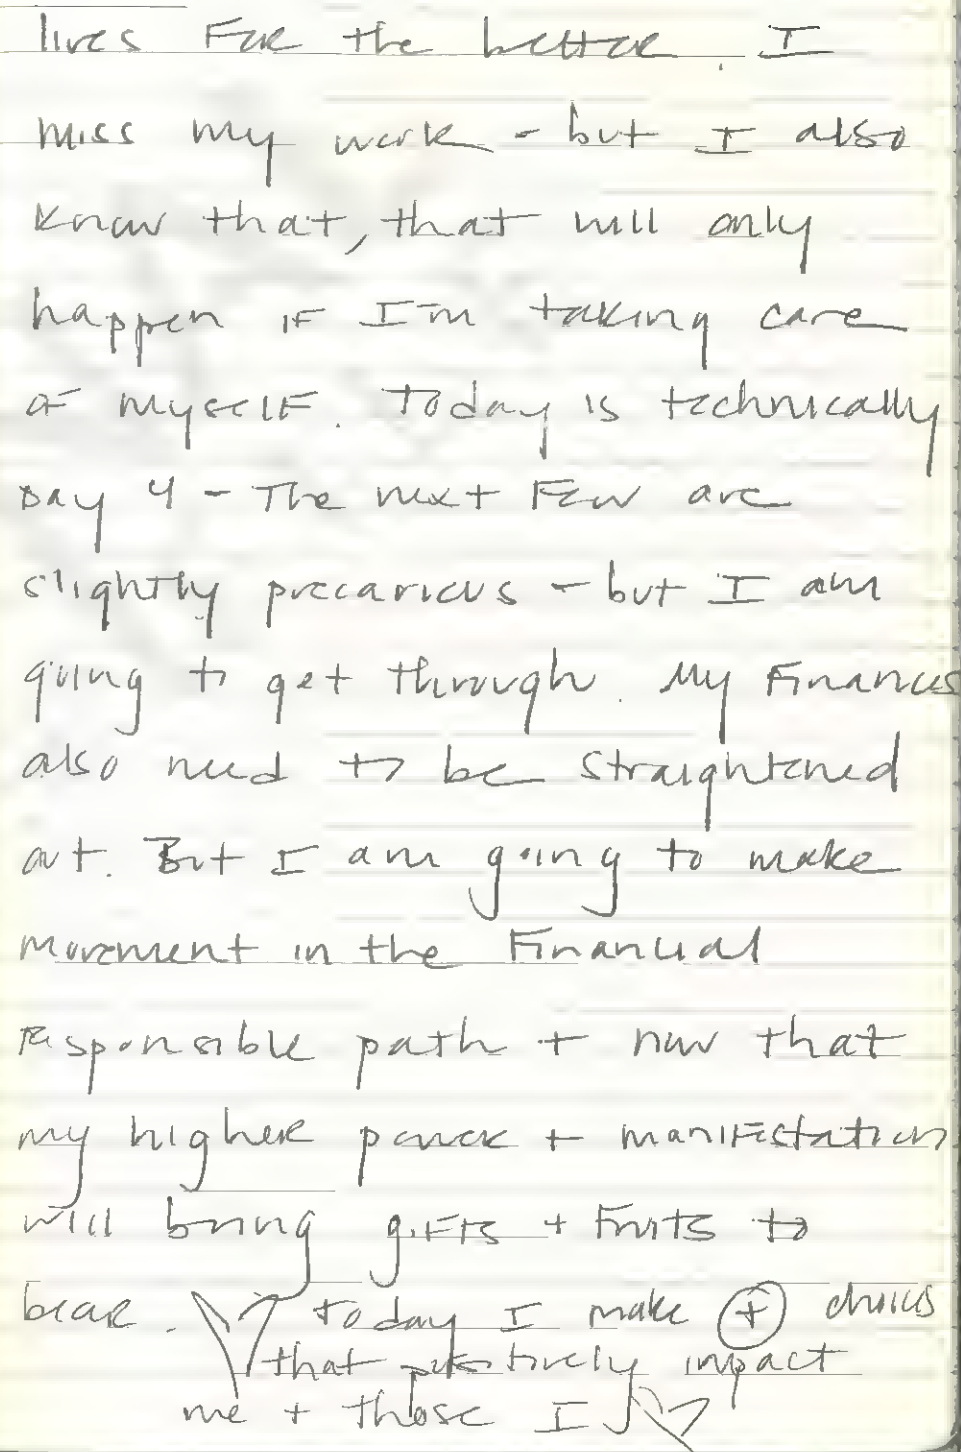 lives For the better. I
miss my work - but I also
know that, that will only
happen if I'm taking care
of myself. Today is technically
Day 4 - The next Few are
slightly precarious - but I am
going to get through. My Finances
also need to be straightened
out. But I am going to make
movement in the Financial
responsible path + now that
my higher power + manifestation
will bring gifts + Fruits to
bear. ♡ Today I make ⊕ choices
that positively impact
me + those I ♡